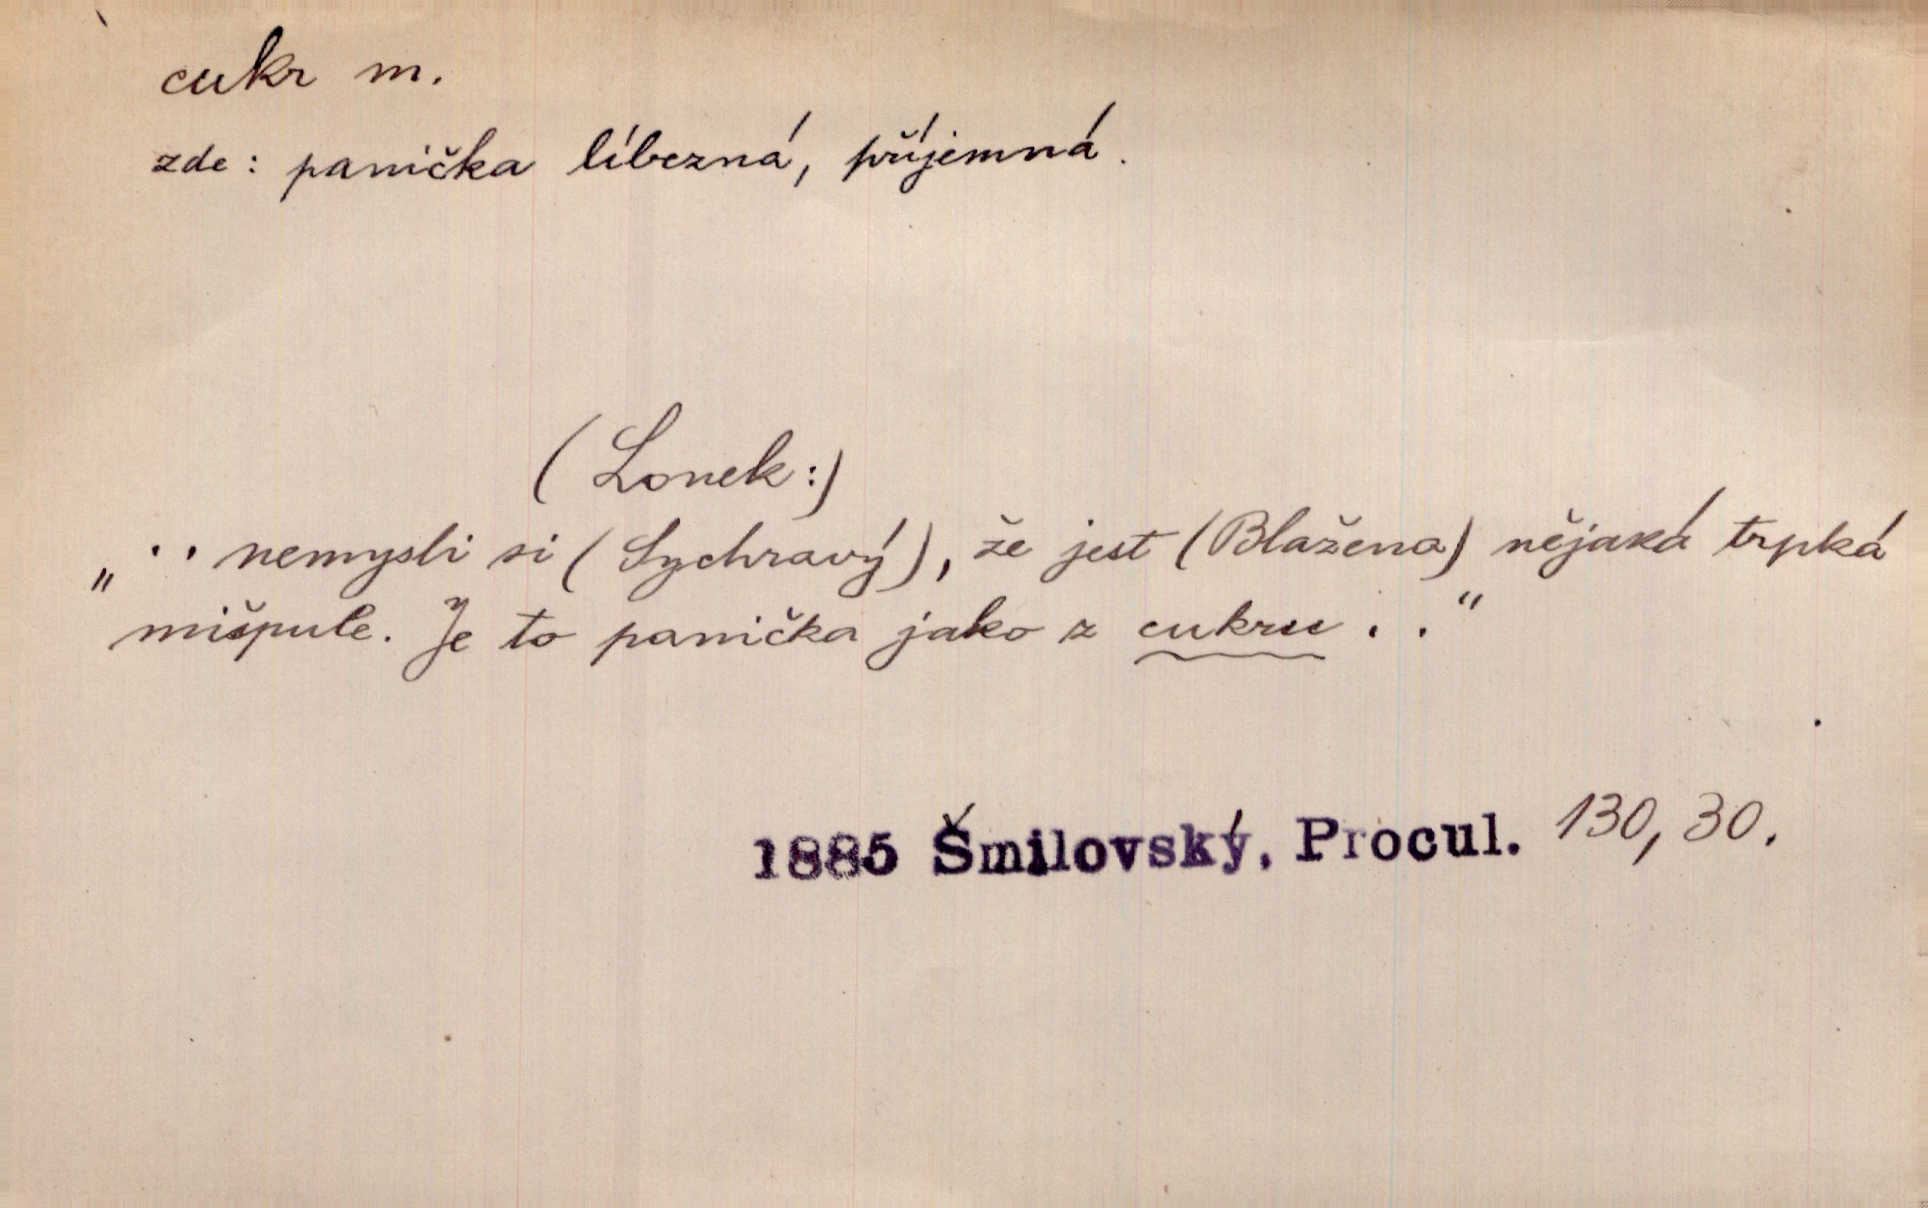 cukr m.
zde: panička líbezná, příjemná.
(Lonek:)
„ .. nemysli si (Sychravý), že jest (Blažena) nějaká trpká
mišpule. Je to panička jako z cukru . . "
1885 Šmilovský, Procul. 130, 30.